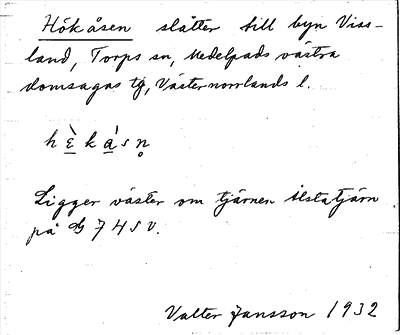 Hökåsen slåtter till byn Viss-
land, Torps sn, Medelpads västra
domsagas tg, Västernorrlands l.
hὲkásn̥
Ligger väster om tjärnen Alstatjärn
på 74 SV.
Valter Jansson 1932